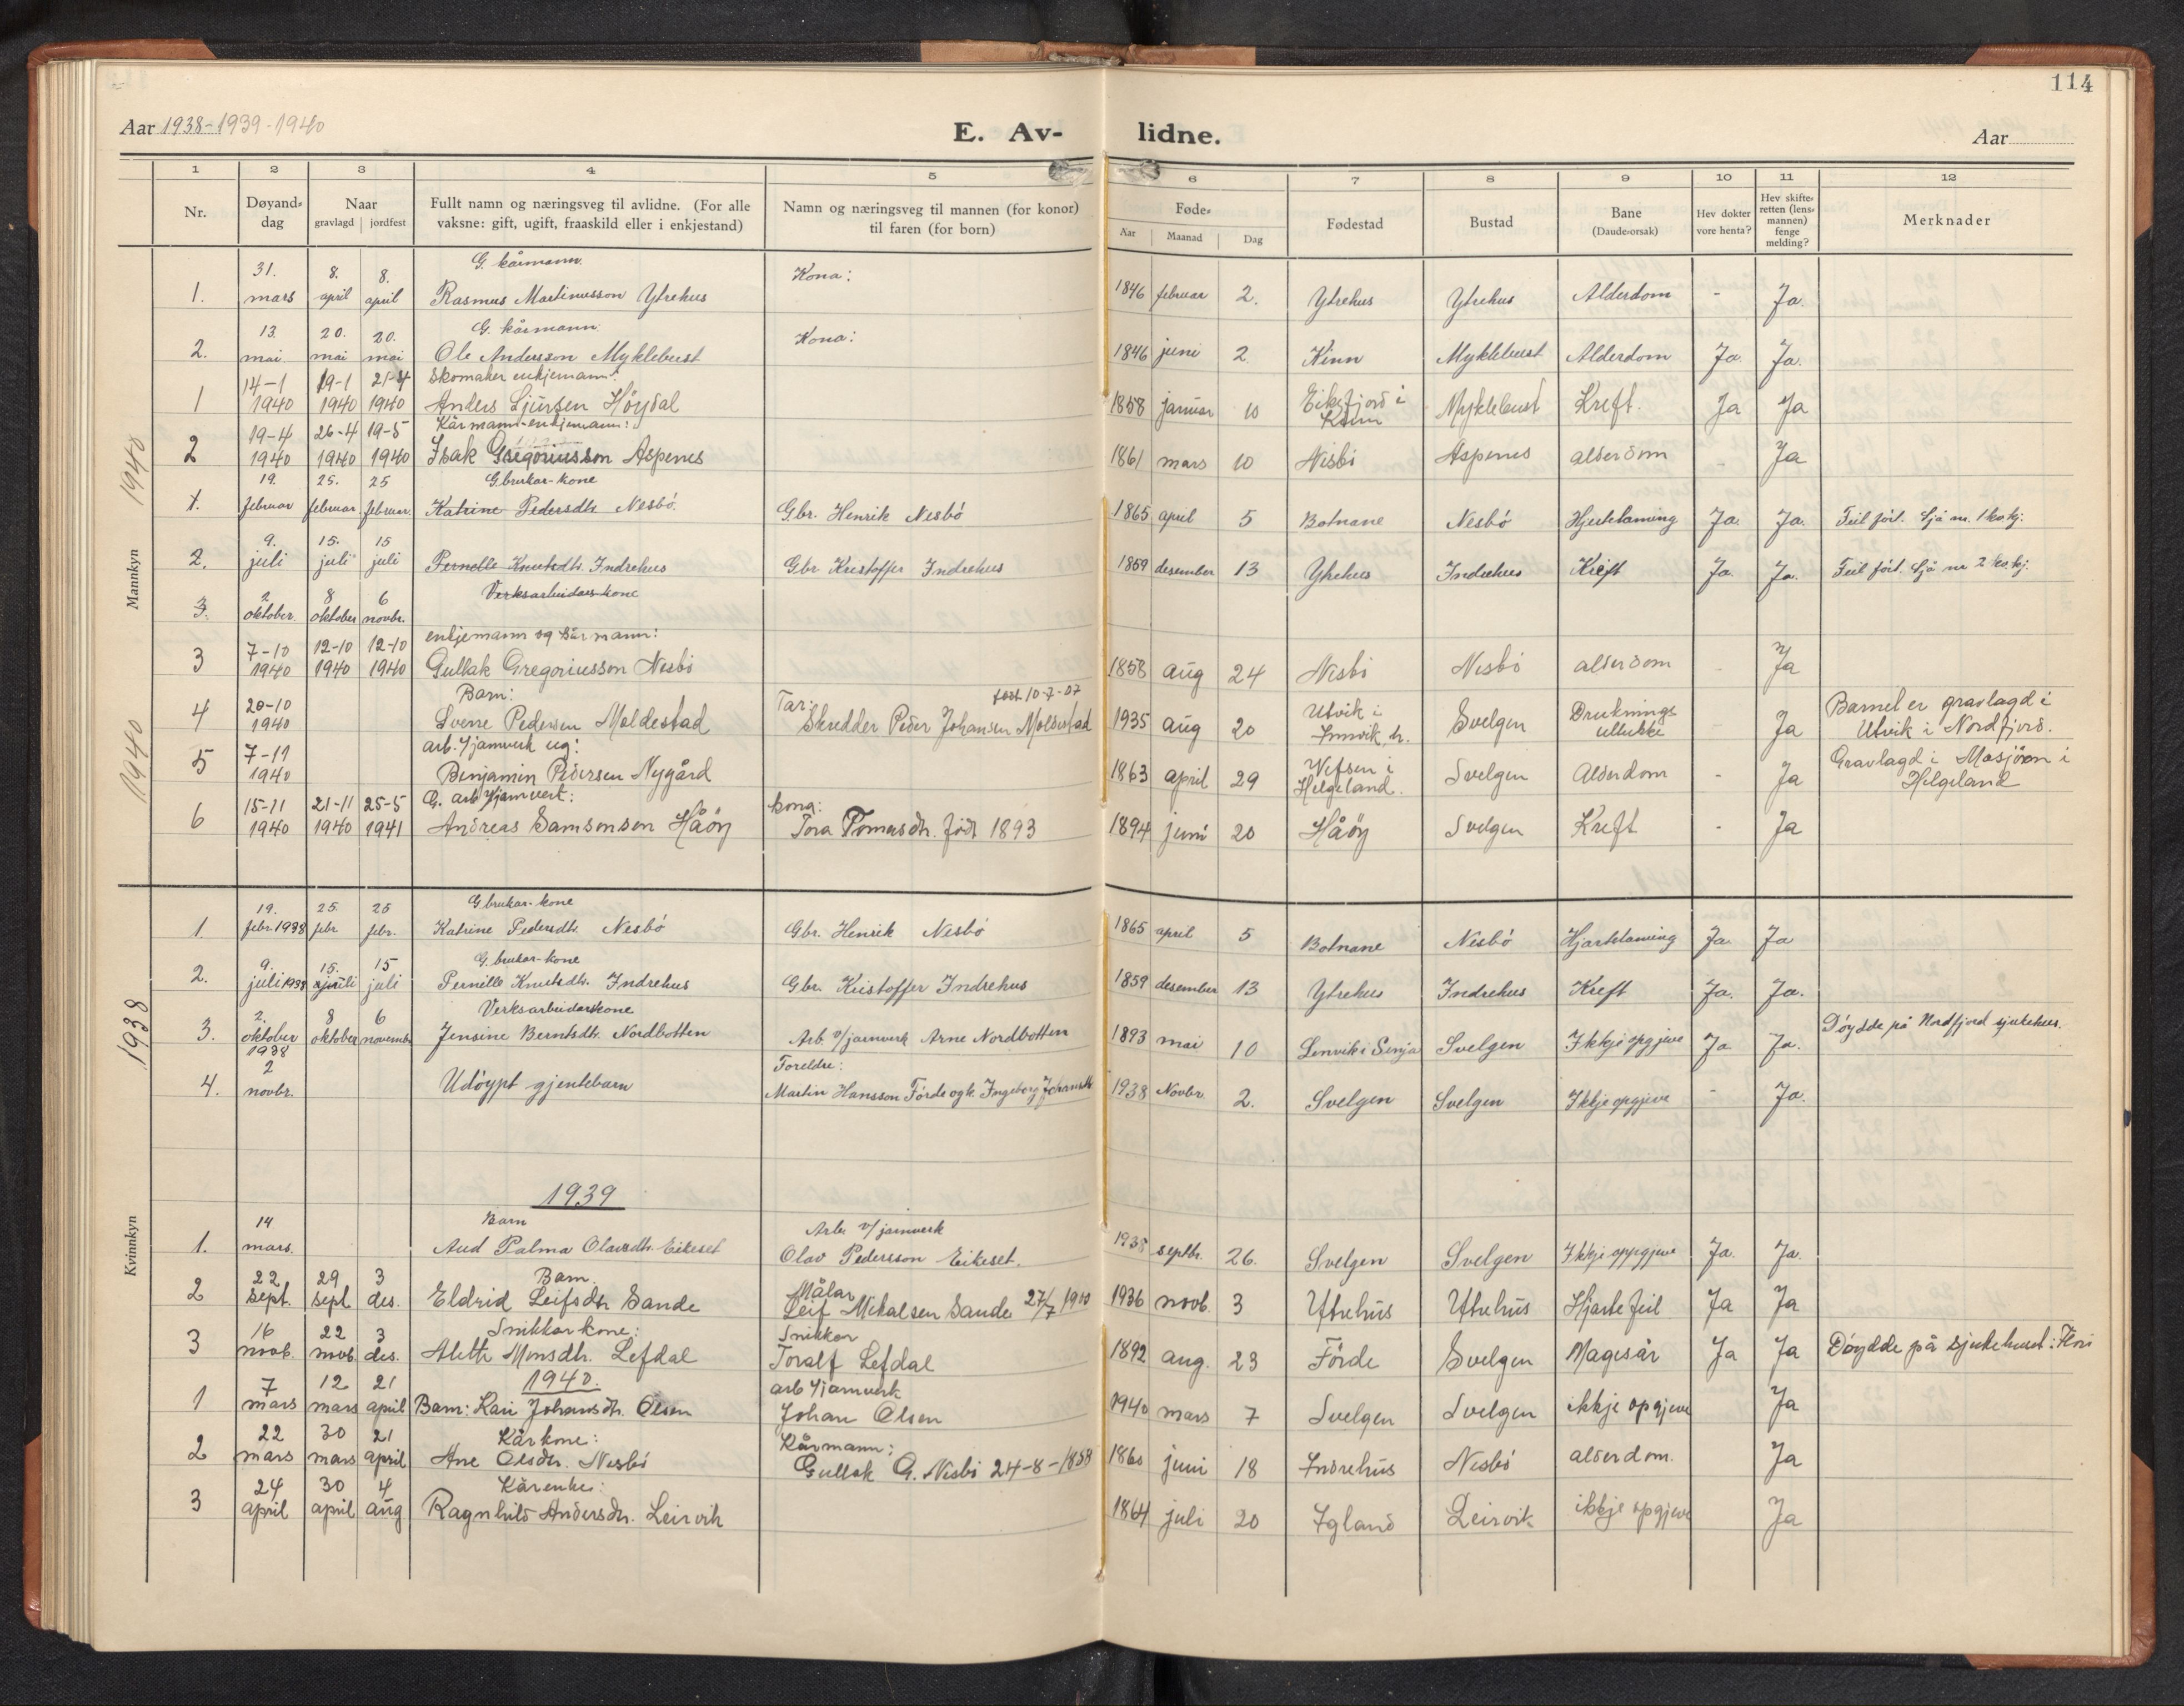 114
Aar 1938-1939-1940
E. Av- lidne.
Aar
1 2 3 4 5 6 7 8 9 10 11 12
Nr. Døyand-dag Naar gravlagd jordfest Fullt namn og næringsveg til avlidne. (For alle vaksne: gift, ugift, fraaskild eller i enkjestand) Namn og næringsveg til mannen (for konor) til faren (for born) Føde- Aar Maanad Dag Fødestad Bustad Bane (Daude-orsak) Hev dokter vore henta? Hev skifteretten (lensmannen) fenge melding? Merknader
Mannkyn
31. 8. 8. G. kårmann. Kona:
1. mars april april Rasmus Martinusson Ytrehus 1846 februar 2. Ytrehus Ytrehus Alderdom - Ja.
13. 20. 20. G. kårmann. Kona:
2. mai mai mai Ole Andersson Myklebust 1846 juni 2 Kinn Myklebust Alderdom Ja. Ja.
1940
14-1 19-1 21-4 Skomaker enkjemann:
1 1940 1940 1940 Anders Ljursen Høydal 1858 januar 10 Eikefjord i Kinn Myklebust Kreft. Ja Ja
19-4 26-4 19-5 Kårmann-enkjemann:
2 1940 1940 1940 Isak Gregoriusson Aspenes 1861 mars 10 Nesbö Aspenes alderdom - Ja
19. 25. 25 G.brukar-kone
1. februar februar februar. Katrine Pedersdtr. Nesbö. Gbr. Henrik Nesbö 1865 april 5 Botnane Nesbö Hjertelaming Ja. Ja. Feil ført. Sjå nr. 1 kv.kj.
9. 15. 15
2. juli juli juli Pernelle Knutsdtr. Indrehus Gbr. Kristoffer Indrehus 1859 desember 13 Ytrehus Indrehus Kreft Ja. Ja. Feil ført. Sjå nr 2 kv.kj.
2 8 6 Verksarbeidar-kone
3. oktober. oktober novbr.
1940
7-10 12-10 12-10 enkjemann og kårmann:
3 1940 1940 1940 Gullak Gregoriusson Nesbö 1858 aug 24 Nesbö Nesbö alderdom - Ja
20-10 Barn: Far: født 10-7-07
4 1940 Sverre Pedersen Moldestad Skredder Peder Johansen Moldestad 1935 aug 20 Utvik i Innvik, h. Svelgen Druknings ullukke - Ja Barnet er gravlagd i Utvik i Nordfjord.
7-11 arb. v/jarnverk ug:
5 1940 Benjamin Pedersen Nygård 1863 april 29 Vefsen i Helgeland. Svelgen Alderdom - Ja Gravlagd i Mosjöen i Helgeland
15-11 21-11 25-5 G. arb v/jarnverk: kona:
6 1940 1940 1941 Andreas Samsonson Håöy Tora Tomasdtr. født 1893 1894 juni 20 Håöy Svelgen Kreft - Ja
Kvinnkyn
1938
19. 25. 25 G.brukar-kone
1. febr.1938 febr febr. Katrine Pedersdtr. Nesbö Gbr. Henrik Nesbö 1865 april 5 Botnane Nesbö Hjartelaming Ja. Ja
9. 15. 15 G. brukar-kone
2. juli 1938 juli juli Pernille Knutsdtr. Indrehus Gbr. Kristoffer Indrehus 1859 desember 13 Ytrehus Indrehus Kreft Ja. Ja.
2. 8 6 Verksarbeidarkone
3. oktober 1938 oktober november Jensine Berntsdtr. Nordbotten Arb. v/jarnverk Arne Nordbotten 1893 mai 10 Lenvik i Senja Svelgen Ikkje opgjeve Ja. Ja. Döydde på Nordfjord sjukehus.
2 Foreldre:
4. novbr. Udöypt gjentebarn Martin Hansson Förde og k. Ingeborg Johansdtr 1938 Novbr. 2. Svelgen Svelgen Ikkje opgjeve - Ja.
1939
14 Barn Arb. v/jarnverk
1. mars. Aud Palma Olavsdtr. Eikeset Olav Pedersson Eikeset. 1938 septbr. 26. Svelgen Svelgen Ikkje oppgjeve Ja. Ja.
22 29 3 Barn. Målar
2 sept. sept des. Eldrid Leifsdtr Sande Leif Mikalsen Sande 27/7 1910 1936 novb. 3 Ytrehus Ytrehus Hjarte feil Ja Ja
16 22 3 Snikkar kone: Snikkar
3 novb. novb. des. Alette Monsdtr. Lefdal Toralf Lefdal 1892 aug. 23 Förde Svelgen Magesår Ja Ja Döydde på sjukehuset i Flori
1940.
7 12 21 arb v/jarnverk
1 mars mars april Barn: Kari Johansdtr. Olsen Johan Olsen 1940 mars 7 Svelgen Svelgen ikkje opgjeve Ja
22 30 21 Kårkone: Kårmann:
2 mars mars april Ane Olsdtr. Nesbö Gullak G. Nesbö 24-8-1858 1860 juni 18 Indrehus Nesbö alderdom. Ja
24 30 4 Kårenke:
3 april april aug Ragnhild Andersdtr. Leirvik 1864 juli 20 Igland Leirvik ikkje opgjeve Ja